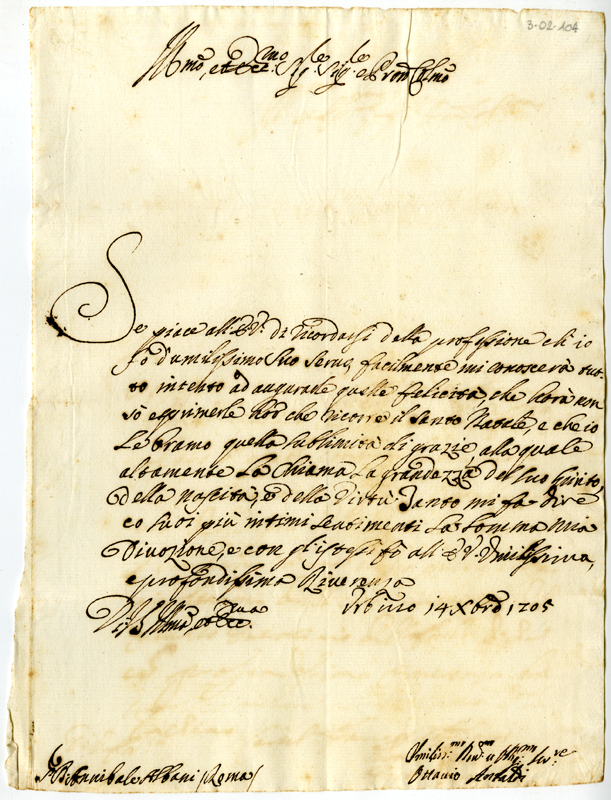 3-02-104
Ill.mo, et Ecc.mo Sig.re Sig.re e Pron Col.mo
Se piace all'E.V. di ricordarsi della professione ch'io
fò d'umilissimo suo servo, facilmente mi conoscerà tut-
to intento ad augurarle quelle felicità, che hora non
sò esprimerle hor che ricorre il santo Natale, e ch'io
Le bramo quella sublimità di grazie, alla quale
altamente La chiama La grandezza del suo spirito,
della nascita, e della Virtù. Tanto mi fa dire
co suoi più intimi sentimenti La somma mia
Divozione, e con gl'istessi fò all'E.V. Umilissima,
e profondissima Riverenza
Di V.S. Ill.ma, et Ecc.ma Urbino 14 Xbre 1705
Annibale Albani (Roma)
Umiliss.mo Dev.mo et Obl.mo Ser.re
Ottavio Antaldi